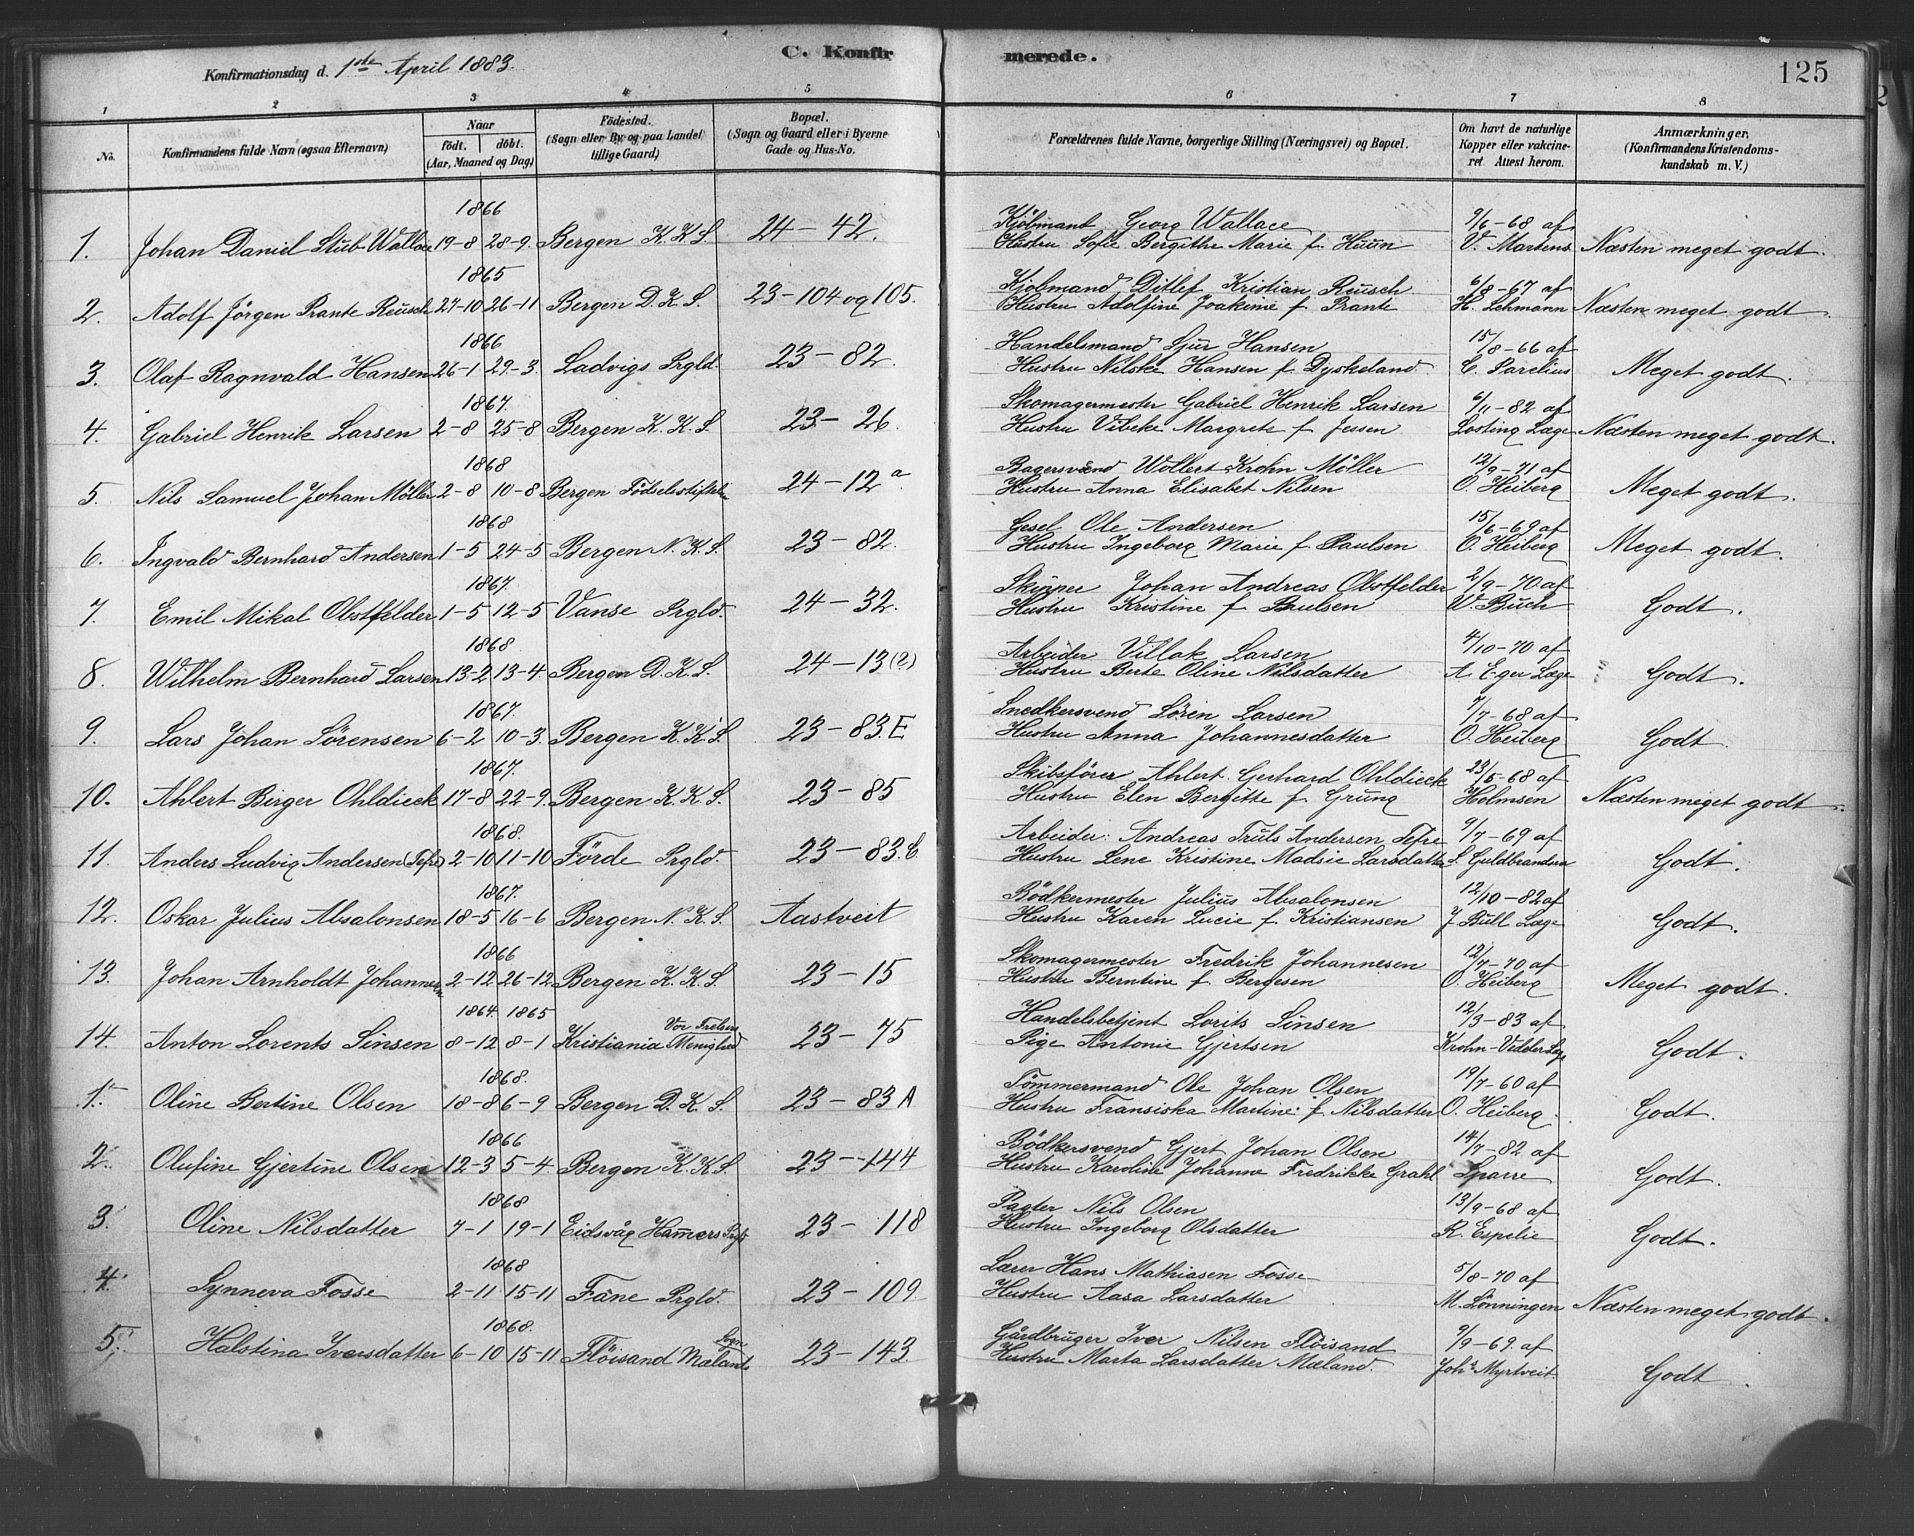 Konfirmationsdag d. 1ste April 1883.
C. Konfirmerede.
125
1 2 3 4 5 6 7 8
No.
Konfirmandens fulde Navn (ogsaa Efternavn)
Naar
født. döbt.
(Aar, Maaned og Dag)
Födested.
(Sogn eller By og paa Landet
tillige Gaard)
Bopæl.
(Sogn og Gaard eller i Byerne
Gade og Hus-No.
Forældrenes fulde Navne, borgerlige Stilling (Næringsvei) og Bopæl.
Om havt de naturlige
Kopper eller vakcine-
ret. Attest herom.
Anmærkninger.
(Konfirmandens Kristendoms-
kundskab m. V.)
1866 Kjöbmand Georg Wallace 9/6-68 af
1. Johan Daniel Stub Wallace 19-8 28-9 Bergen K.K.S. 24-42. Hustru Sofie Bergithe Marie f. Huun V. Martens Næsten meget godt.
1865 Kjöbmand Ditlef Kristian Reusch 6/8-67 af
2. Adolf Jörgen Prante Reusch 27-10 26-11 Bergen D.K.S. 23-104 og 105. Hustru Adolfine Joakime f Prante H. Lehmann Næsten meget godt.
1866 Handelsmand Sjur Hansen 15/8-66 af
3. Olaf Ragnvald Hansen 26-1 29-3. Ladvigs Prgld. 23-82. Hustru Nilske Hansen f Dyskeland C. Parelius Meget godt.
1867. Skomagermester Gabriel Henrik Larsen 6/11-82 af
4. Gabriel Henrik Larsen 2-8 25-8 Bergen K.K.S. 23-26. Hustru Vibeke Margrethe f Jessen Losting Læge Næsten meget godt.
1868 Bagersvend Wollert Krohn Möller 12/9-71 af
5. Nils Samuel Johan Möller 2-8 10-8 Bergen Födselsstiftelse 24-12 a Hustru Anna Elisabet Nilsen O. Heiberg Meget godt.
1868 Gesel Ole Andersen 15/6-69 af
6. Ingvald Bernhard Andersen 1-5 24-5 Bergen N.K.S. 23-82. Hustru Ingeborg Marie f. Paulsen O. Heiberg Meget godt.
1867. Skipper Johan Andreas Obstfelder 2/9-70 af
7. Emil Mikal Obstfelder 1-5 12-5 Vanse Prgld. 24-32. Hustru Kristine f Paulsen W. Buch Godt.
1868 Arbeider Villak Larsen 4/10-70 af
8. Wilhelm Bernhard Larsen 13-2 13-4 Bergen D.K.S. 24-13(2) Hustru Berte Oline Nilsdatter A. Eger Læge Godt.
1867. Snedkersvend Sören Larsen 7/7-68 af
9. Lars Johan Sörensen 6-2 10-3. Bergen K.K.S. 23-83 E Hustru Anna Johannesdatter O. Heiberg Godt.
1867. Skibsförer Ahlert Gerhard Ohldieck 23/5-68 af
10. Ahlert Birger Ohldieck 17-8 22-9 Bergen K.K.S. 23-85 Hustru Elen Bergitte f. Grung Holmsen Næsten meget godt.
1868. Arbeider: Andreas Truls Andersen Tefre 9/7-69 af
11. Anders Ludvig Andersen (Tefre) 2-10 11-10 Förde Prgld. 23-83.C. Hustru Lene Kristine Madsie Larsdatter S. Guldbrandsen Godt.
1867. Bödkermester Julius Absalonsen 12/10-82 af
12. Oskar Julius Absalonsen 18-5 16-6 Bergen N.K.S. Aastveit Hustru Karen Lucie f Kristiansen J. Bull Læge Godt.
1866 Skomagermester Fredrik Johannesen 12/7-70 af
13. Johan Arnholdt Johannesen 2-12 26-12 Bergen K.K.S. 23-15 Hustru Berntine f Bergesen O. Heiberg Meget godt.
1864. 1865 Vor Frelsers Handelsbetjent Lorits Sinsen 12/3-83 af
14. Anton Lorents Sinsen 8-12 8-1 Kristiania Menighed 23-75 Pige Antonie Gjertsen Krohn-Vedeler Læge Godt.
1868. Tömmermand Ole Johan Olsen 19/7-60 af
1. Oline Bertine Olsen 18-8 6-9 Bergen D.K.S. 23-83 A Hustru Fransiska Martine f Nilsdatter O. Heiberg. Godt.
1866 Bödkersvend Gjert Johan Olsen 14/7-82 af
2. Olufine Gjertine Olsen 12-3 5-4 Bergen K.K.S 23-144 Hustru Karoline Johanne Fredrikke Grahl Sparre Godt.
1868 Pagter Nils Olsen 13/9-68 af
3. Oline Nilsdatter 7-1 19-1 Eidsvåg Hamers Prgld 23-118 Hustru Ingeborg Olsdatter R. Espelie Godt.
1868 Lærer Hans Mathiasen Fosse 5/8-70 af
4. Synneva Fosse 2-11 15-11 Fane Prgld. 23-109 Hustru Aasa Larsdatter M. Lönningen Næsten meget godt.
1868. Sogn Gårdbruger Iver Nilsen Flöisand 9/9-69. af
5. Halstina Iversdatter 6-10 15-11 Flöisand Mælands 23-143 Hustru Marta Larsdatter Mæland. Johs Myrtveit Godt.